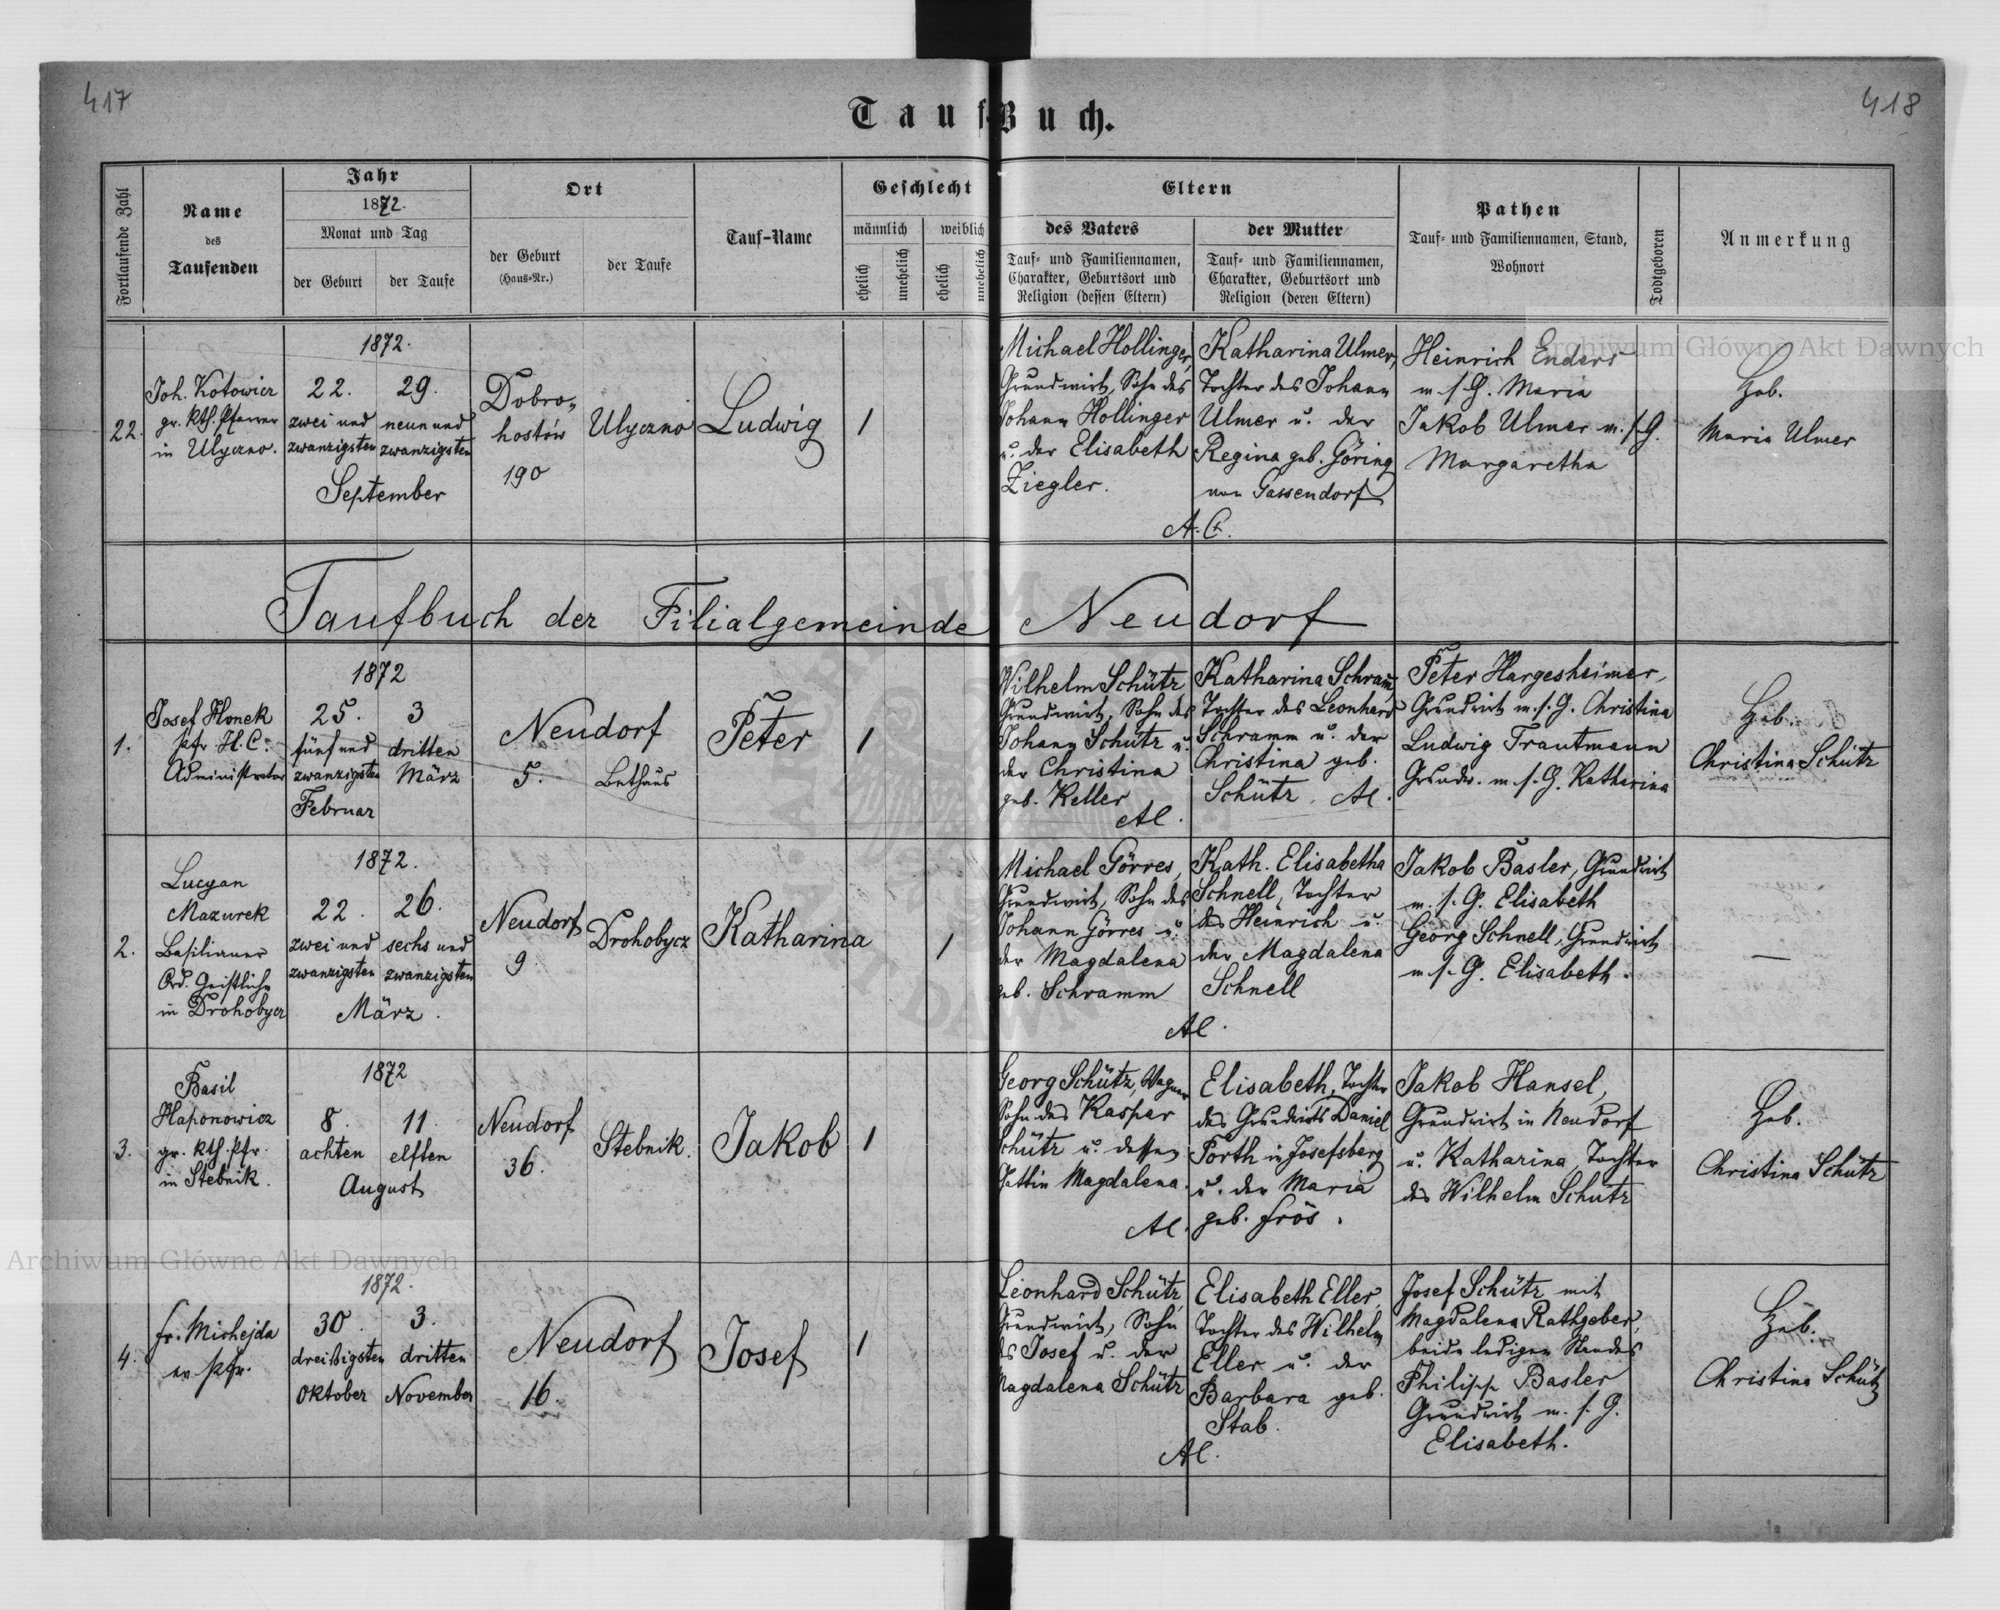 417
418
Tauf-Buch.
Fortlaufende Zahl
Name
des
Taufenden
Jahr
1872.
Monat und Tag
der Geburt
der Taufe
Ort
der Geburt
(Haus-Nr.)
der Taufe
Tauf-Name
Geschlecht
männlich
weiblich
ehelich
unehelich
ehelich
unehelich
Eltern
des Vaters
Tauf- und Familiennamen,
Charakter, Geburtsort und
Religion (dessen Eltern)
der Mutter
Tauf- und Familiennamen,
Charakter, Geburtsort und
Religion (deren Eltern)
Pathen
Tauf- und Familiennamen, Stand,
Wohnort
Todtgeboren
Anmerkung
22.
Joh. Kotowicz
gr. kth. Pfarrer
in Ulyczno.
1872.
22.
zwei und
zwanzigsten
29.
neun und
zwanzigsten
September
Dobro-
hostów
190
Ulyczno
Ludwig
1
Michael Hollinger,
Grundwirt, Sohn des
Johann Hollinger
u. der Elisabeth
Ziegler.
Katharina Ulmer,
Tochter des Johann
Ulmer u. der
Regina geb. Göring
von Gassendorf
A. C.
Heinrich Enders
m. s. G. Maria
Jakob Ulmer m. s. G.
Margaretha
Heb.
Maria Ulmer
Taufbuch der Filialgemeinde Neudorf
1.
Josef Honek
Pfr H. C.
Administrator
1872
25.
fünf und
zwanzigsten
Februar
3
dritten
März
Neudorf
5.
Bethaus
Peter
1
Wilhelm Schütz
Grundwirt, Sohn des
Johann Schütz u.
der Christina
geb. Keller
AC.
Katharina Schramm
Tochter des Leonhard
Schramm u. der
Christina geb.
Schütz. AC.
Peter Hargesheimer,
Grundwirt m. s. G. Christina
Ludwig Trautmann
Grundw. m. s. G. Katharina
Heb.
Christina Schütz
2.
Lucyan
Mazurek
Basilianer
Ord. Geistliche
in Drohobycz
1872.
22.
zwei und
zwanzigsten
26.
sechs und
zwanzigsten
März.
Neudorf
9.
Drohobycz
Katharina
1
Michael Görres,
Grundwirt, Sohn des
Johann Görres u.
der Magdalena
geb. Schramm
Kath. Elisabetha
Schnell, Tochter
des Heinrich u.
der Magdalena
Schnell
AC.
Jakob Basler, Grundwirt
m. s. G. Elisabeth
Georg Schnell, Grundwirt
m. s. G. Elisabeth.
—
3.
Basil
Haponowicz
gr. kth. Pfr.
in Stebnik.
1872
8.
achten
11.
elften
August
Neudorf
36.
Stebnik.
Jakob
1
Georg Schütz, Wagner
Sohn des Kaspar
Schütz u. dessen
Gattin Magdalena.
AC.
Elisabeth, Tochter
des Grundwirts Daniel
Porth in Josefsberg
u. der Maria
geb. Frös.
Jakob Hansel,
Grundwirt in Neudorf
u. Katharina, Tochter
des Wilhelm Schütz
Heb.
Christina Schütz
4.
Fr. Michejda
ev. Pfr.
1872.
30.
dreißigsten
Oktober
3.
dritten
November
Neudorf
16.
Josef
1
Leonhard Schütz,
Grundwirt, Sohn
des Josef u. der
Magdalena Schütz
Elisabeth Eller,
Tochter des Wilhelm
Eller u. der
Barbara geb.
Stab.
AC.
Josef Schütz mit
Magdalena Rathgeber,
beide ledigen Standes
Philipp Basler
Grundwirt m. s. G.
Elisabeth.
Heb.
Christina Schütz
Archiwum Główne Akt Dawnych
Archiwum Główne Akt Dawnych